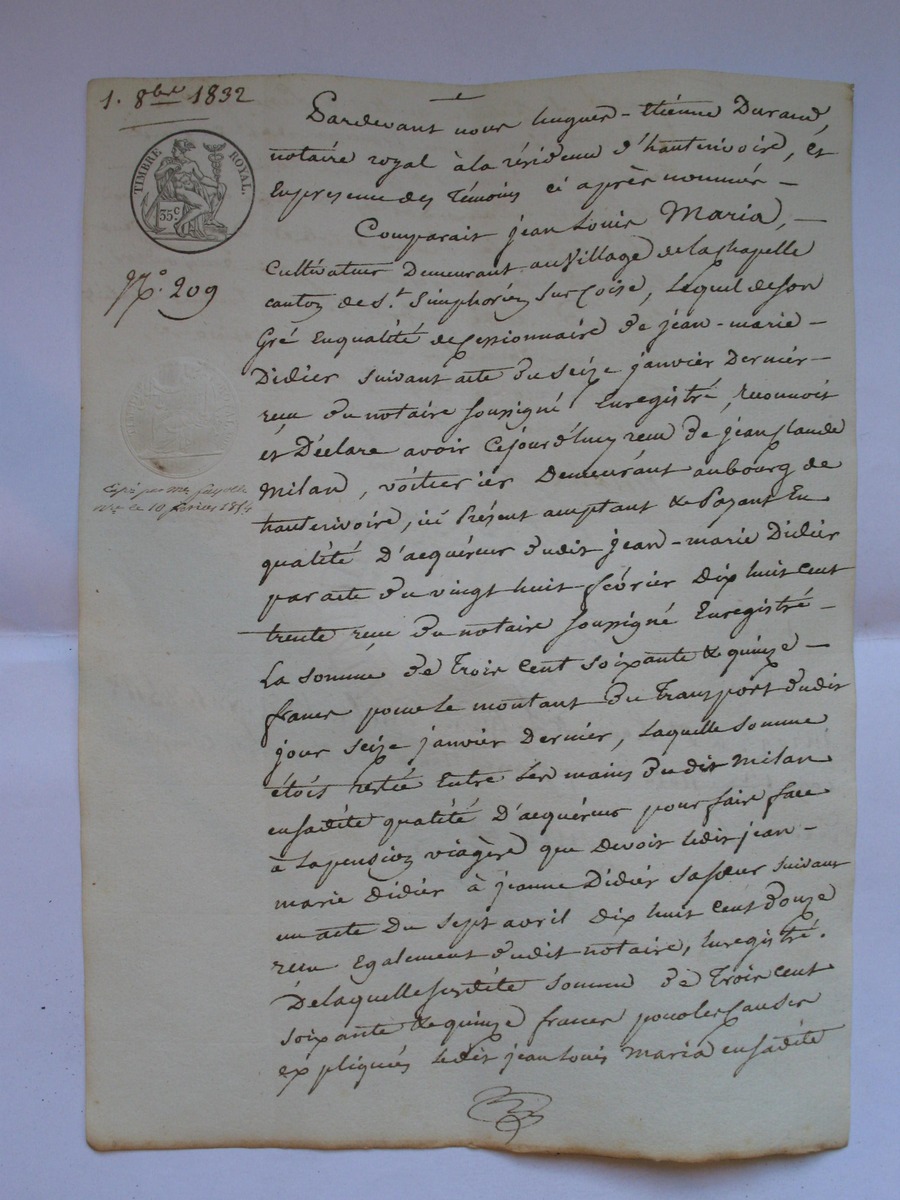 1. 8bre 1832
TIMBRE ROYAL.
35c
No. 209
Copié par me
le 10 février
Pardevant nous hugues-étienne Durand,
notaire royal à la résidence d'hauterivoire, et
En presence des Témoins ci après nommés —
Comparait jean Louis Maria, —
Cultivateur Demeurant au Village de la Chapelle
canton de St. Simphorien Sur Coise, lequel de son
Gré En qualité de Cessionnaire de jean-marie —
Didier suivant acte du seize janvier Dernier —
reçu du notaire soussigné Enregistré, reconnoit
et Déclare avoir Cejourd'huy reçu de jean Claude
Milan, voiturier Demeurant au bourg de
hauterivoire, ici Présent acceptant & Payant En
qualité D'acquéreur dudit jean-marie Didier
par acte du vingt huit février dix huit cent
trente reçu du notaire soussigné Enregistré —
La somme de Trois cent soixante & quinze —
francs pour le montant du Transport dudit
jour seize janvier Dernier, laquelle somme
étoit restée Entre les mains dudit Milan
en sadite qualité D'acquéreur pour faire face
à la pension viagère que devoit ledit jean-
marie Didier à jeanne Didier sa sœur suivant
un acte du sept avril dix huit cent douze
reçu également dudit notaire, Enregistré.
De laquelle susdite somme de Trois cent
soixante & quinze francs pour les causes
expliquées ledit jean Louis Maria en sadite